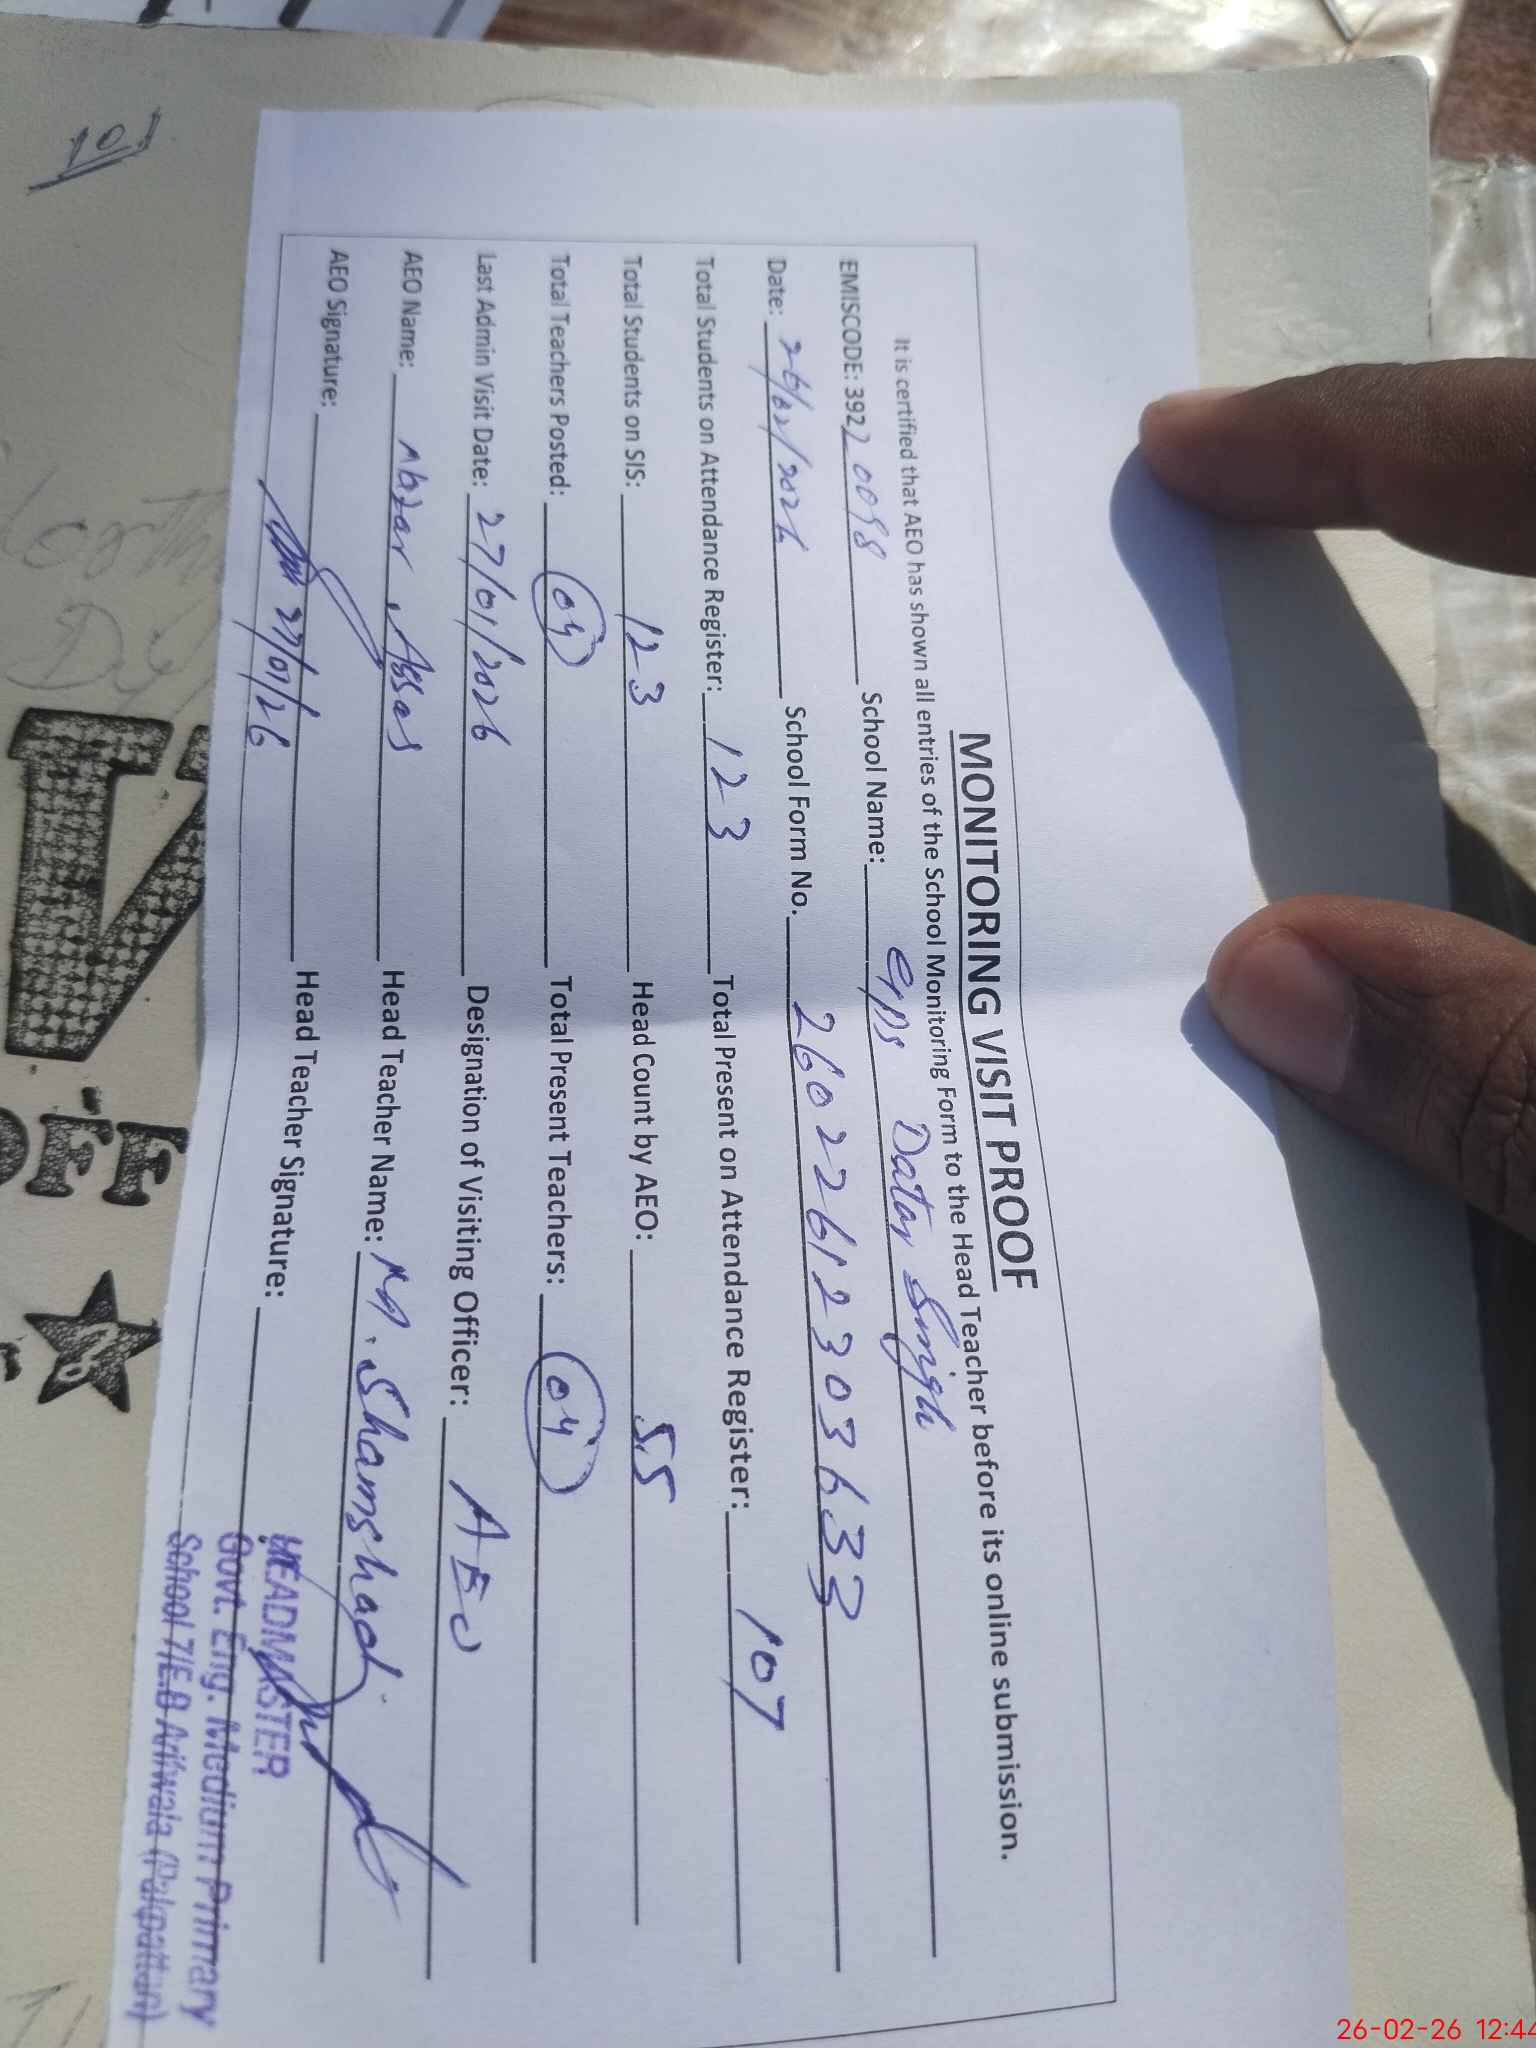 MONITORING VISIT PROOF
It is certified that AEO has shown all entries of the School Monitoring Form to the Head Teacher before its online submission.
EMISCODE: 39220098 School Name: GPS Datar Singh
Date: 26/02/2026 School Form No. 26022612303633
Total Students on Attendance Register: 123 Total Present on Attendance Register: 107
Total Students on SIS: 123 Head Count by AEO: 55
Total Teachers Posted: 04 Total Present Teachers: 04
Last Admin Visit Date: 27/01/2026 Designation of Visiting Officer: AEO
AEO Name: Abzar Abbas Head Teacher Name: M. Shamshad
AEO Signature: 27/01/26 Head Teacher Signature:
HEADMASTER
Govt. Eng. Medium Primary
School 7/E.B Arifwala (Pakpattan)
101
OFF
26-02-26 12:44